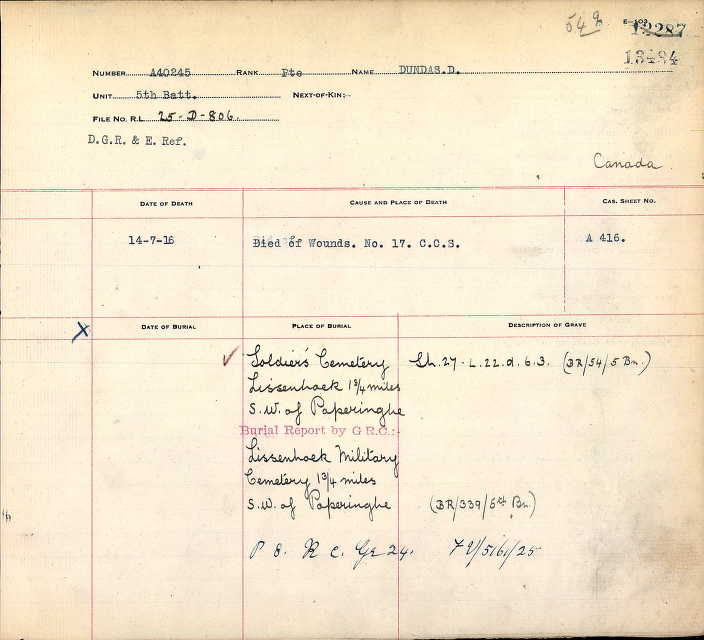 54
E-103
12287
13484
NUMBER A40245 RANK Pte NAME DUNDAS.D.
UNIT 5th Batt. NEXT-OF-KIN:-
FILE NO. R.L. 25-D-806.
D.G.R. & E. Ref.
Canada
DATE OF DEATH CAUSE AND PLACE OF DEATH CAS. SHEET NO.
14-7-16 Died of Wounds. No. 17. C.C.S. A 416.
X DATE OF BURIAL PLACE OF BURIAL DESCRIPTION OF GRAVE
Soldier's Cemetery Sh.27-L.22.d.6.3. (BR/54/5 Bn.)
Lissenhoek 1 3/4 miles
S.W. of Paperinghe
Burial Report by G.R.C.:-
Lissenhoek Military
Cemetery 1 3/4 miles
S.W. of Paperinghe (BR/339/5th Bn.)
P 8. R C. Gr 24.